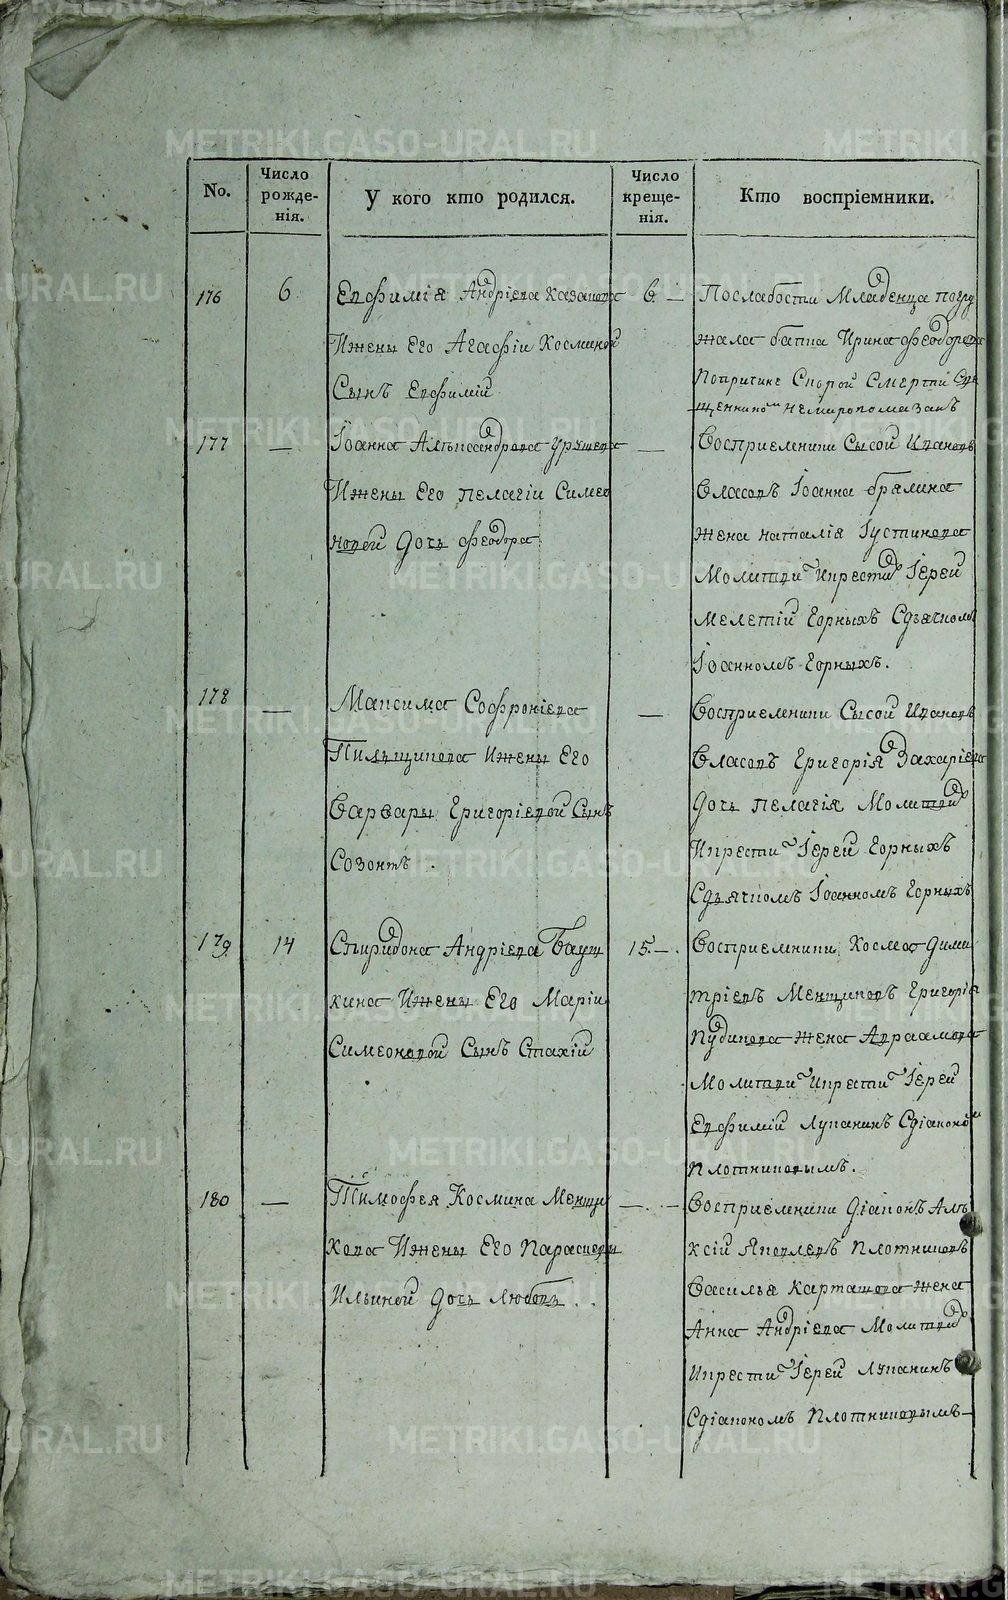 No.
Число рожде-нія.
У кого кто родился.
Число креще-нія.
Кто воспріемники.
176
6
Евфимія Андріева Казанова
Ижены Его Агафіи Косминой
Сынъ Евфимій
6 —
Послабости Младенца погру
жала бапка Ирина Феодорова
Попричине Скорой Смерти Свя
щенникомъ немиропомазанъ
177
—
Іоанна Алѣксандрова
Ижены Его пелагіи Симео
новой Дочь Феодора
—
Восприемники Сысой Ивановъ
Власовъ Іоанна
жена наталія Іустинова
Молитви Икрести Іерей
Мелетій Горныхъ Сдьячкомъ
Іоанномъ Горныхъ.
178
—
Максима Софроніева
Пильщикова Ижены Его
Варвары Григоріевой Сынъ
Созонтъ
—
Восприемники Сысой Ивановъ
Власовъ Григорія Захаріева
дочь пелагія Молитви
Икрести Іерей Горныхъ
Сдьячкомъ Іоанномъ Горныхъ
179
14
Спиридона Андріева Бауш
кина Ижены Его Маріи
Симеоновой Сынъ Стахій
15. —
Восприемники Косма дими
тріевъ Менщиковъ Григорія
жена Авраамова
Молитви Икрести Іерей
Евфимій Лупанинъ Сдіакономъ
Плотниковымъ.
180
—
Тимофея Космина Менщи
кова Ижены Его Параскевы
Ильиной Дочь Любовь . .
— . —
Восприемники діаконъ Алѣ
ксій Яковлевъ Плотниковъ
Василья Карташова жена
Анна Андріева Молитви
Икрести Іерей Лупанинъ
Сдіакономъ Плотниковымъ —
METRIKI.GASO-URAL.RU